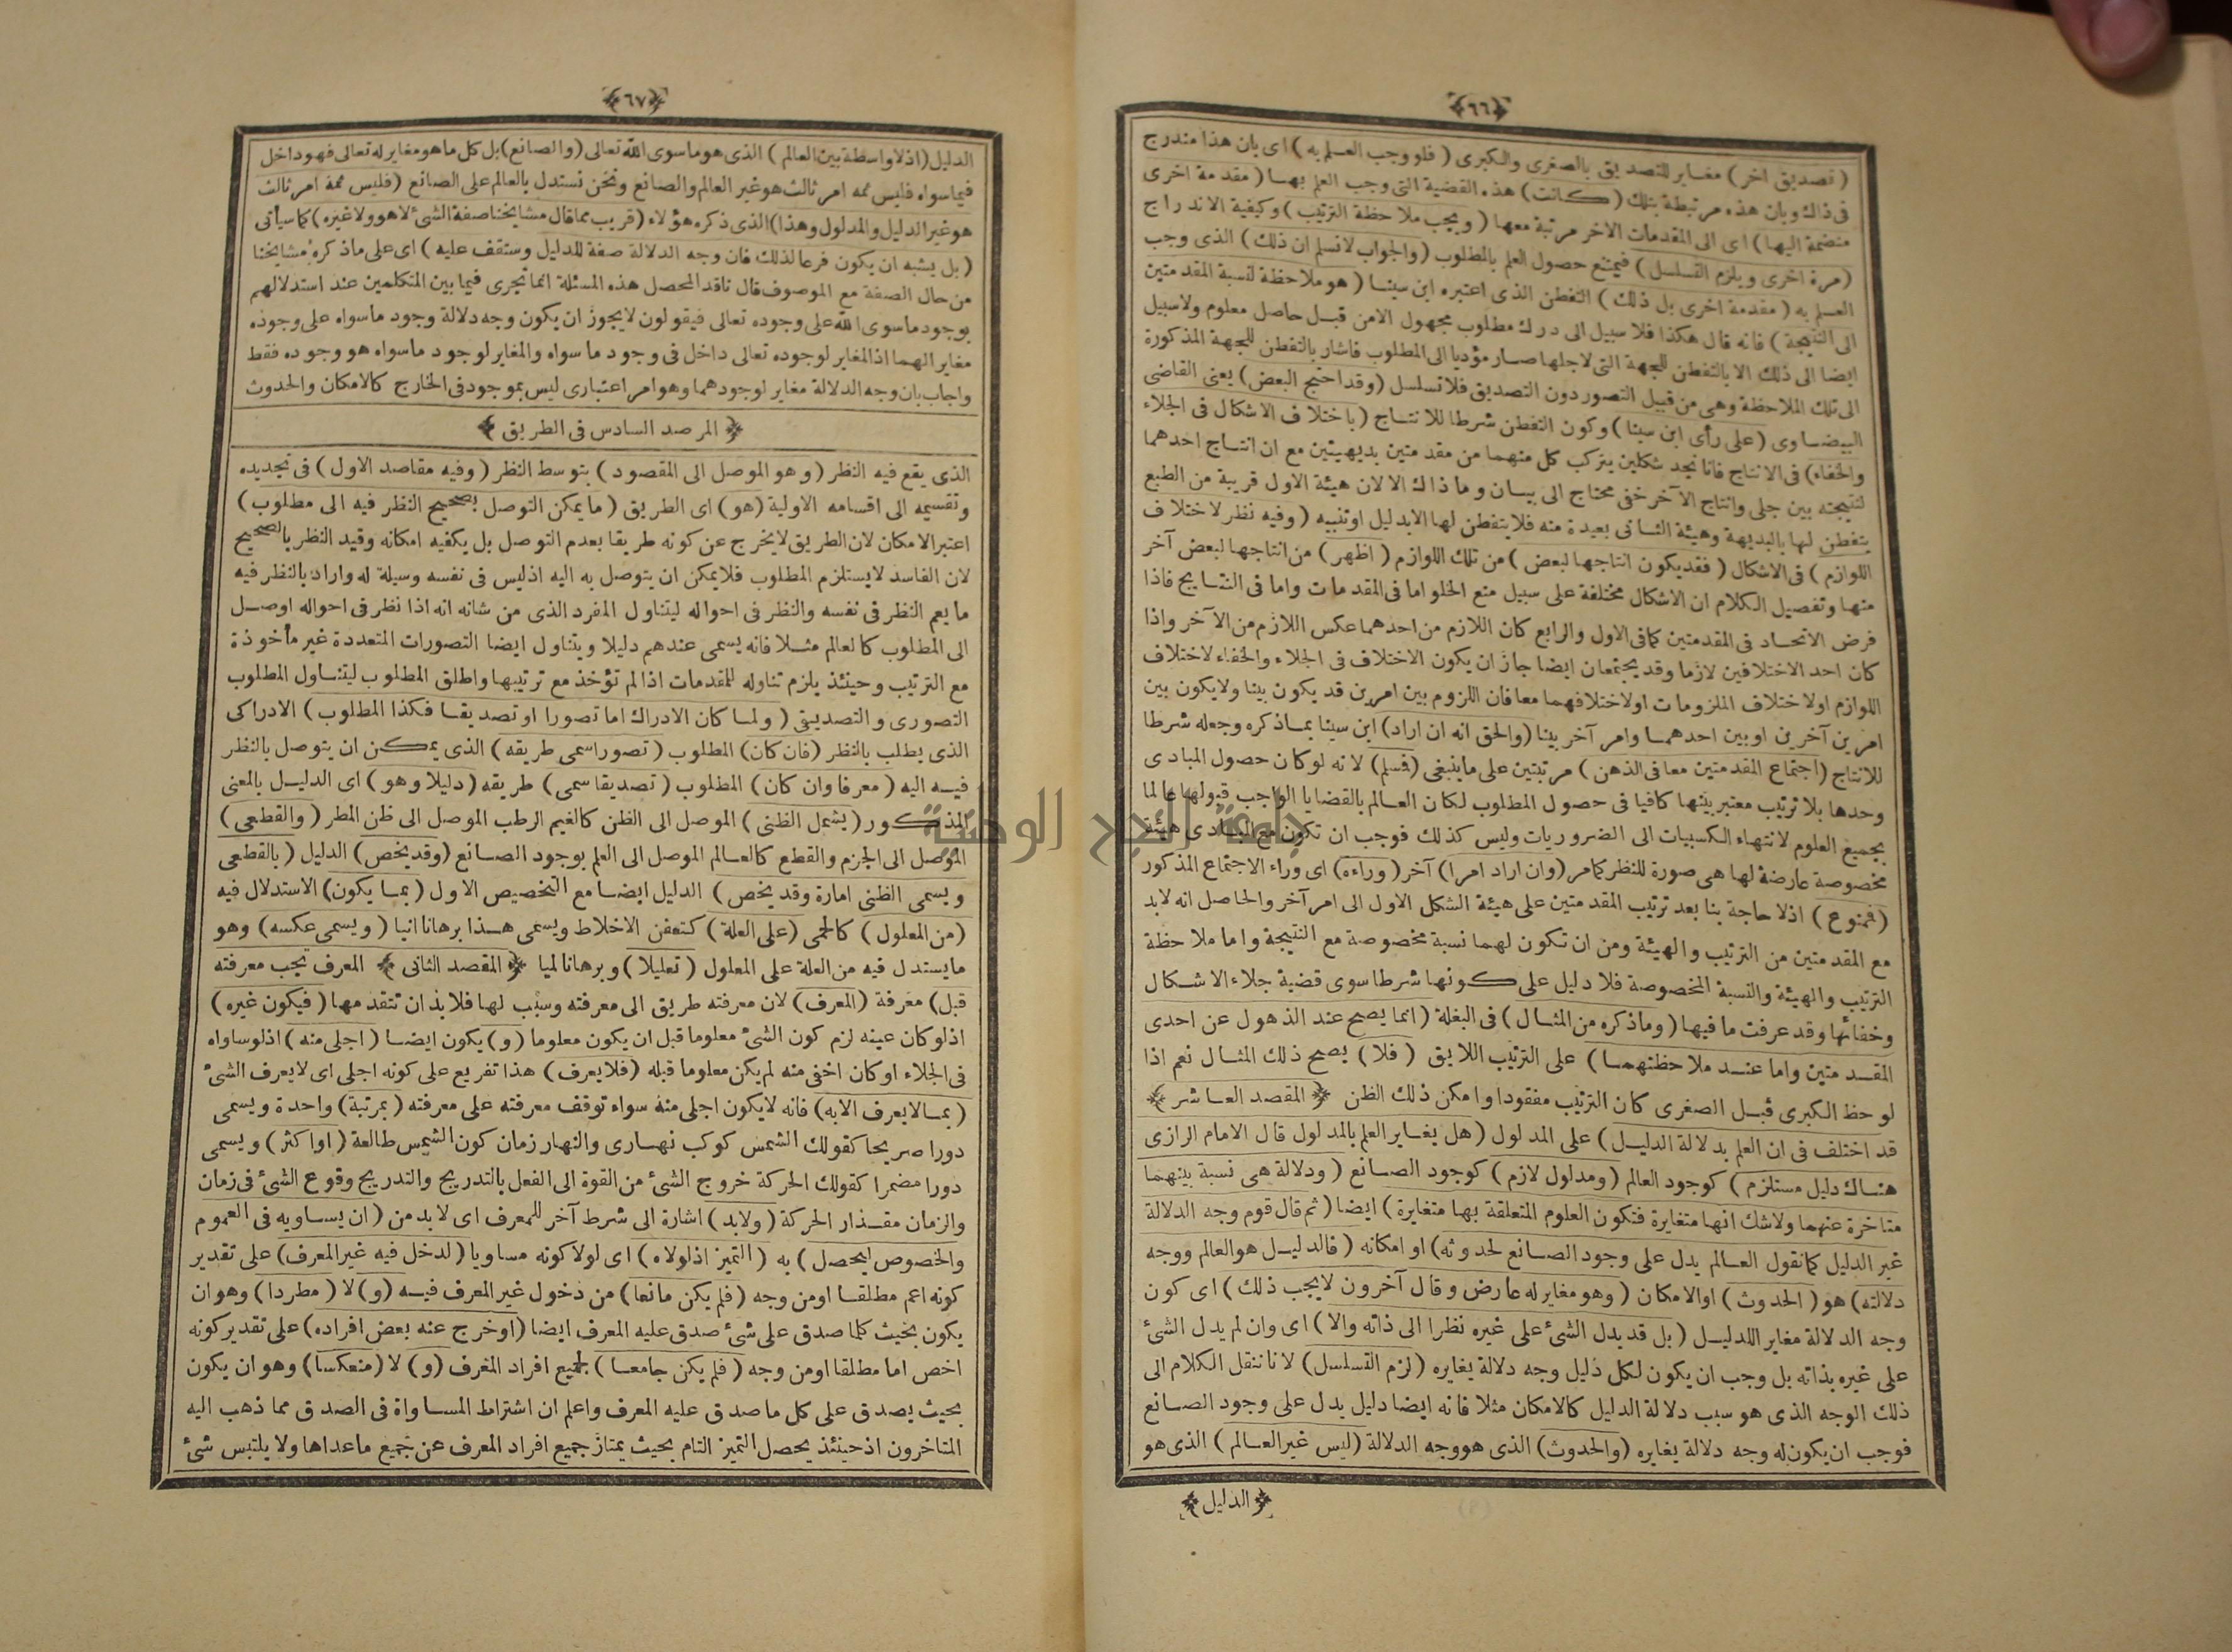 ﴿٦٦﴾
( تصديق اخر ) مغاير للتصديق بالصغرى والكبرى ( فلو وجب العلم به ) اى بان هذا مندرج
فى ذاك وبان هذه مرتبطة بتلك ( كانت ) هذه القضية التى وجب العلم بها ( مقدمة اخرى
منضمة اليها ) اى الى المقدمات الاخر مرتبة معها ( ويجب ملاحظة الترتيب ) وكيفية الاندراج
( مرة اخرى ويلزم التسلسل ) فيمتنع حصول العلم بالمطلوب ( والجواب لانسلم ان ذلك ) الذى وجب
العلم به ( مقدمة اخرى بل ذلك ) التفطن الذى اعتبره ابن سينا ( هو ملاحظة لنسبة المقدمتين
الى النتيجة ) فانه قال هكذا فلا سبيل الى درك مطلوب مجهول الامن قبل حاصل معلوم ولاسبيل
ايضا الى ذلك الا بالتفطن للجهة التى لاجلها صار مؤديا الى المطلوب فاشار بالتفطن للجهة المذكورة
الى تلك الملاحظة وهى من قبيل التصور دون التصديق فلاتسلسل ( وقد احتج البعض ) يعنى القاضى
البيضاوى ( على رأى ابن سينا ) وكون التفطن شرطا للانتاج ( باختلاف الاشكال فى الجلاء
والخفاء ) فى الانتاج فانا نجد شكلين يتركب كل منهما من مقدمتين بديهيتين مع ان انتاج احدهما
لنتيجته بين جلى وانتاج الآخر خفى محتاج الى بيان وما ذاك الا لان هيئة الاول قريبة من الطبع
يتفطن لها بالبديهة وهيئة الثانى بعيدة منه فلايتفطن لها الابدليل اوتنبيه ( وفيه نظر لاختلاف
اللوازم ) فى الاشكال ( فقديكون انتاجها لبعض ) من تلك اللوازم ( اظهر ) من انتاجها لبعض آخر
منها وتفصيل الكلام ان الاشكال مختلفة على سبيل منع الخلو اما فى المقدمات واما فى النتايج فاذا
فرض الاتحاد فى المقدمتين كمافى الاول والرابع كان اللازم من احدهما عكس اللازم من الآخر واذا
كان احد الاختلافين لازما وقد يجتمعان ايضا جاز ان يكون الاختلاف فى الجلاء والخفاء لاختلاف
اللوازم اولاختلاف الملزومات اولاختلافهما معا فان اللزوم بين امرين قد يكون بينا ولايكون بين
امرين آخرين اوبين احدهما وامر آخر بينا ( والحق انه ان اراد ) ابن سينا بماذكره وجعله شرطا
للانتاج ( اجتماع المقدمتين معا فى الذهن ) مرتبتين على ماينبغى ( فسلم ) لانه لوكان حصول المبادى
وحدها بلا ترتيب معتبر بينها كافيا فى حصول المطلوب لكان العالم بالقضايا الواجب قبولها عالما
بجميع العلوم لانتهاء الكسبيات الى الضروريات وليس كذلك فوجب ان تكون مع المبادى هيئة
مخصوصة عارضة لها هى صورة للنظر كمامر ( وان اراد امرا ) آخر ( وراءه ) اى وراء الاجتماع المذكور
( فممنوع ) اذلا حاجة بنا بعد ترتيب المقدمتين على هيئة الشكل الاول الى امر آخر والحاصل انه لابد
مع المقدمتين من الترتيب والهيئة ومن ان تكون لهما نسبة مخصوصة مع النتيجة واما ملاحظة
الترتيب والهيئة والنسبة المخصوصة فلا دليل على كونها شرطا سوى قضية جلاء الاشكال
وخفائها وقد عرفت ما فيها ( وماذكره من المثال ) فى البغلة ( انما يصح عند الذهول عن احدى
المقدمتين واما عند ملاحظتهما ) على الترتيب اللايق ( فلا ) يصح ذلك المثال نعم اذا
لوحظ الكبرى قبل الصغرى كان الترتيب مفقودا وامكن ذلك الظن ﴿ المقصد العاشر ﴾
قد اختلف فى ان العلم بدلالة الدليل ) على المدلول ( هل يغاير العلم بالمدلول قال الامام الرازى
هناك دليل مستلزم ) كوجود العالم ( ومدلول لازم ) كوجود الصانع ( ودلالة هى نسبة بينهما
متاخرة عنهما ولاشك انها متغايرة فتكون العلوم المتعلقة بها متغايرة ) ايضا ( ثم قال قوم وجه الدلالة
غير الدليل كمانقول العالم يدل على وجود الصانع لحدوثه ) او امكانه ( فالدليل هو العالم ووجه
دلالته ) هو ( الحدوث ) اوالامكان ( وهو مغاير له عارض وقال آخرون لايجب ذلك ) اى كون
وجه الدلالة مغاير اللدليل ( بل قد يدل الشئ على غيره نظرا الى ذاته والا ) اى وان لم يدل الشئ
على غيره بذاته بل وجب ان يكون لكل دليل وجه دلالة يغايره ( لزم التسلسل ) لاناننقل الكلام الى
ذلك الوجه الذى هو سبب دلالة الدليل كالامكان مثلا فانه ايضا دليل يدل على وجود الصانع
فوجب ان يكون له وجه دلالة يغايره ( والحدوث ) الذى هووجه الدلالة ( ليس غيرالعالم ) الذى هو
﴿ الدليل ﴾
﴿٦٧﴾
الدليل ( اذلاواسطة بين العالم ) الذى هو ماسوى الله تعالى ( والصانع ) بل كل ماهو مغاير له تعالى فهوداخل
فيماسواه فليس ثمه امر ثالث هوغير العالم والصانع ونحن نستدل بالعالم على الصانع ( فليس ثمة امر ثالث
هوغير الدليل والمدلول وهذا ) الذى ذكره هؤلاء ( قريب مماقال مشايخنا صفة الشئ لاهوولاغيره ) كماسيأتى
( بل يشبه ان يكون فرعا لذلك فان وجه الدلالة صفة للدليل وستقف عليه ) اى على ماذكره مشايخنا
من حال الصفة مع الموصوف قال ناقد المحصل هذه المسئلة انما تجرى فيما بين المتكلمين عند استدلالهم
بوجود ماسوى الله على وجوده تعالى فيقولون لايجوز ان يكون وجه دلالة وجود ماسواه على وجوده
مغاير الهما اذالمغاير لوجوده تعالى داخل فى وجود ماسواه والمغاير لوجود ماسواه هو وجوده فقط
واجاب بان وجه الدلالة مغاير لوجودهما وهو امر اعتبارى ليس بموجود فى الخارج كالامكان والحدوث
﴿ المرصد السادس فى الطريق ﴾
الذى يقع فيه النظر ( وهو الموصل الى المقصود ) بتوسط النظر ( وفيه مقاصد الاول ) فى تحديده
وتقسيمه الى اقسامه الاولية ( هو ) اى الطريق ( مايمكن التوصل بصحيح النظر فيه الى مطلوب )
اعتبر الامكان لان الطريق لايخرج عن كونه طريقا بعدم التوصل بل يكفيه امكانه وقيد النظر بالصحيح
لان الفاسد لايستلزم المطلوب فلايمكن ان يتوصل به اليه اذليس فى نفسه وسيلة له واراد بالنظر فيه
مايعم النظر فى نفسه والنظر فى احواله ليتناول المفرد الذى من شانه انه اذا نظر فى احواله اوصل
الى المطلوب كالعالم مثلا فانه يسمى عندهم دليلا ويتناول ايضا التصورات المتعددة غير مأخوذة
مع الترتيب وحينئذ يلزم تناوله للمقدمات اذا لم تؤخذ مع ترتيبها واطلق المطلوب ليتناول المطلوب
التصورى والتصديقى ( ولما كان الادراك اما تصورا اوتصديقا فكذا المطلوب ) الادراكى
الذى يطلب بالنظر ( فان كان ) المطلوب ( تصورا سمى طريقه ) الذى يمكن ان يتوصل بالنظر
فيه اليه ( معرفا وان كان ) المطلوب ( تصديقا سمى ) طريقه ( دليلا وهو ) اى الدليل بالمعنى
المذكور ( يشمل الظنى ) الموصل الى الظن كالغيم الرطب الموصل الى ظن المطر ( والقطعى )
الموصل الى الجزم والقطع كالعالم الموصل الى العلم بوجود الصانع ( وقديخص ) الدليل ( بالقطعى
ويسمى الظنى امارة وقد يخص ) الدليل ايضا مع التخصيص الاول ( بما يكون ) الاستدلال فيه
( من المعلول ) كالحمى ( على العلة ) كتعفن الاخلاط ويسمى هذا برهانا انيا ( ويسمى عكسه ) وهو
مايستدل فيه من العلة على المعلول ( تعليلا ) وبرهانا لميا ﴿ المقصد الثانى ﴾ المعرف تجب معرفته
قبل ) معرفة ( المعرف ) لان معرفته طريق الى معرفته وسبب لها فلابد ان تتقدمها ( فيكون غيره )
اذلوكان عينه لزم كون الشئ معلوما قبل ان يكون معلوما ( و ) يكون ايضا ( اجلى منه ) اذلوساواه
فى الجلاء اوكان اخفى منه لم يكن معلوما قبله ( فلايعرف ) هذا تفريع على كونه اجلى اى لايعرف الشئ
( بمالايعرف الابه ) فانه لايكون اجلى منه سواء توقف معرفته على معرفته ( بمرتبة ) واحدة ويسمى
دورا صريحا كقولك الشمس كوكب نهارى والنهار زمان كون الشمس طالعة ( اواكثر ) ويسمى
دورا مضمرا كقولك الحركة خروج الشئ من القوة الى الفعل بالتدريج والتدريج وقوع الشئ فى زمان
والزمان مقدار الحركة ( ولابد ) اشارة الى شرط آخر للمعرف اى لابد من ( ان يساويه فى العموم
والخصوص ليحصل ) به ( التميز اذلولاه ) اى لولا كونه مساويا ( لدخل فيه غير المعرف ) على تقدير
كونه اعم مطلقا اومن وجه ( فلم يكن مانعا ) من دخول غير المعرف فيه ( و ) لا ( مطردا ) وهو ان
يكون بحيث كلما صدق على شئ صدق عليه المعرف ايضا ( اوخرج عنه بعض افراده ) على تقدير كونه
اخص اما مطلقا اومن وجه ( فلم يكن جامعا ) لجميع افراد المعرف ( و ) لا ( منعكسا ) وهو ان يكون
بحيث يصدق على كل ما صدق عليه المعرف واعلم ان اشتراط المساواة فى الصدق مما ذهب اليه
المتاخرون اذحينئذ يحصل التميز التام بحيث يمتاز جميع افراد المعرف عن جميع ماعداها ولا يلتبس شئ
جامعة النجاح الوطنية